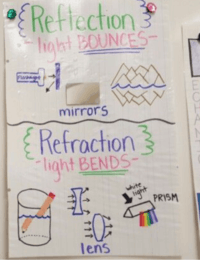 Reflection
-light BOUNCES-
Flashlight
mirrors
Refraction
-light BENDS-
white light
PRISM
lens